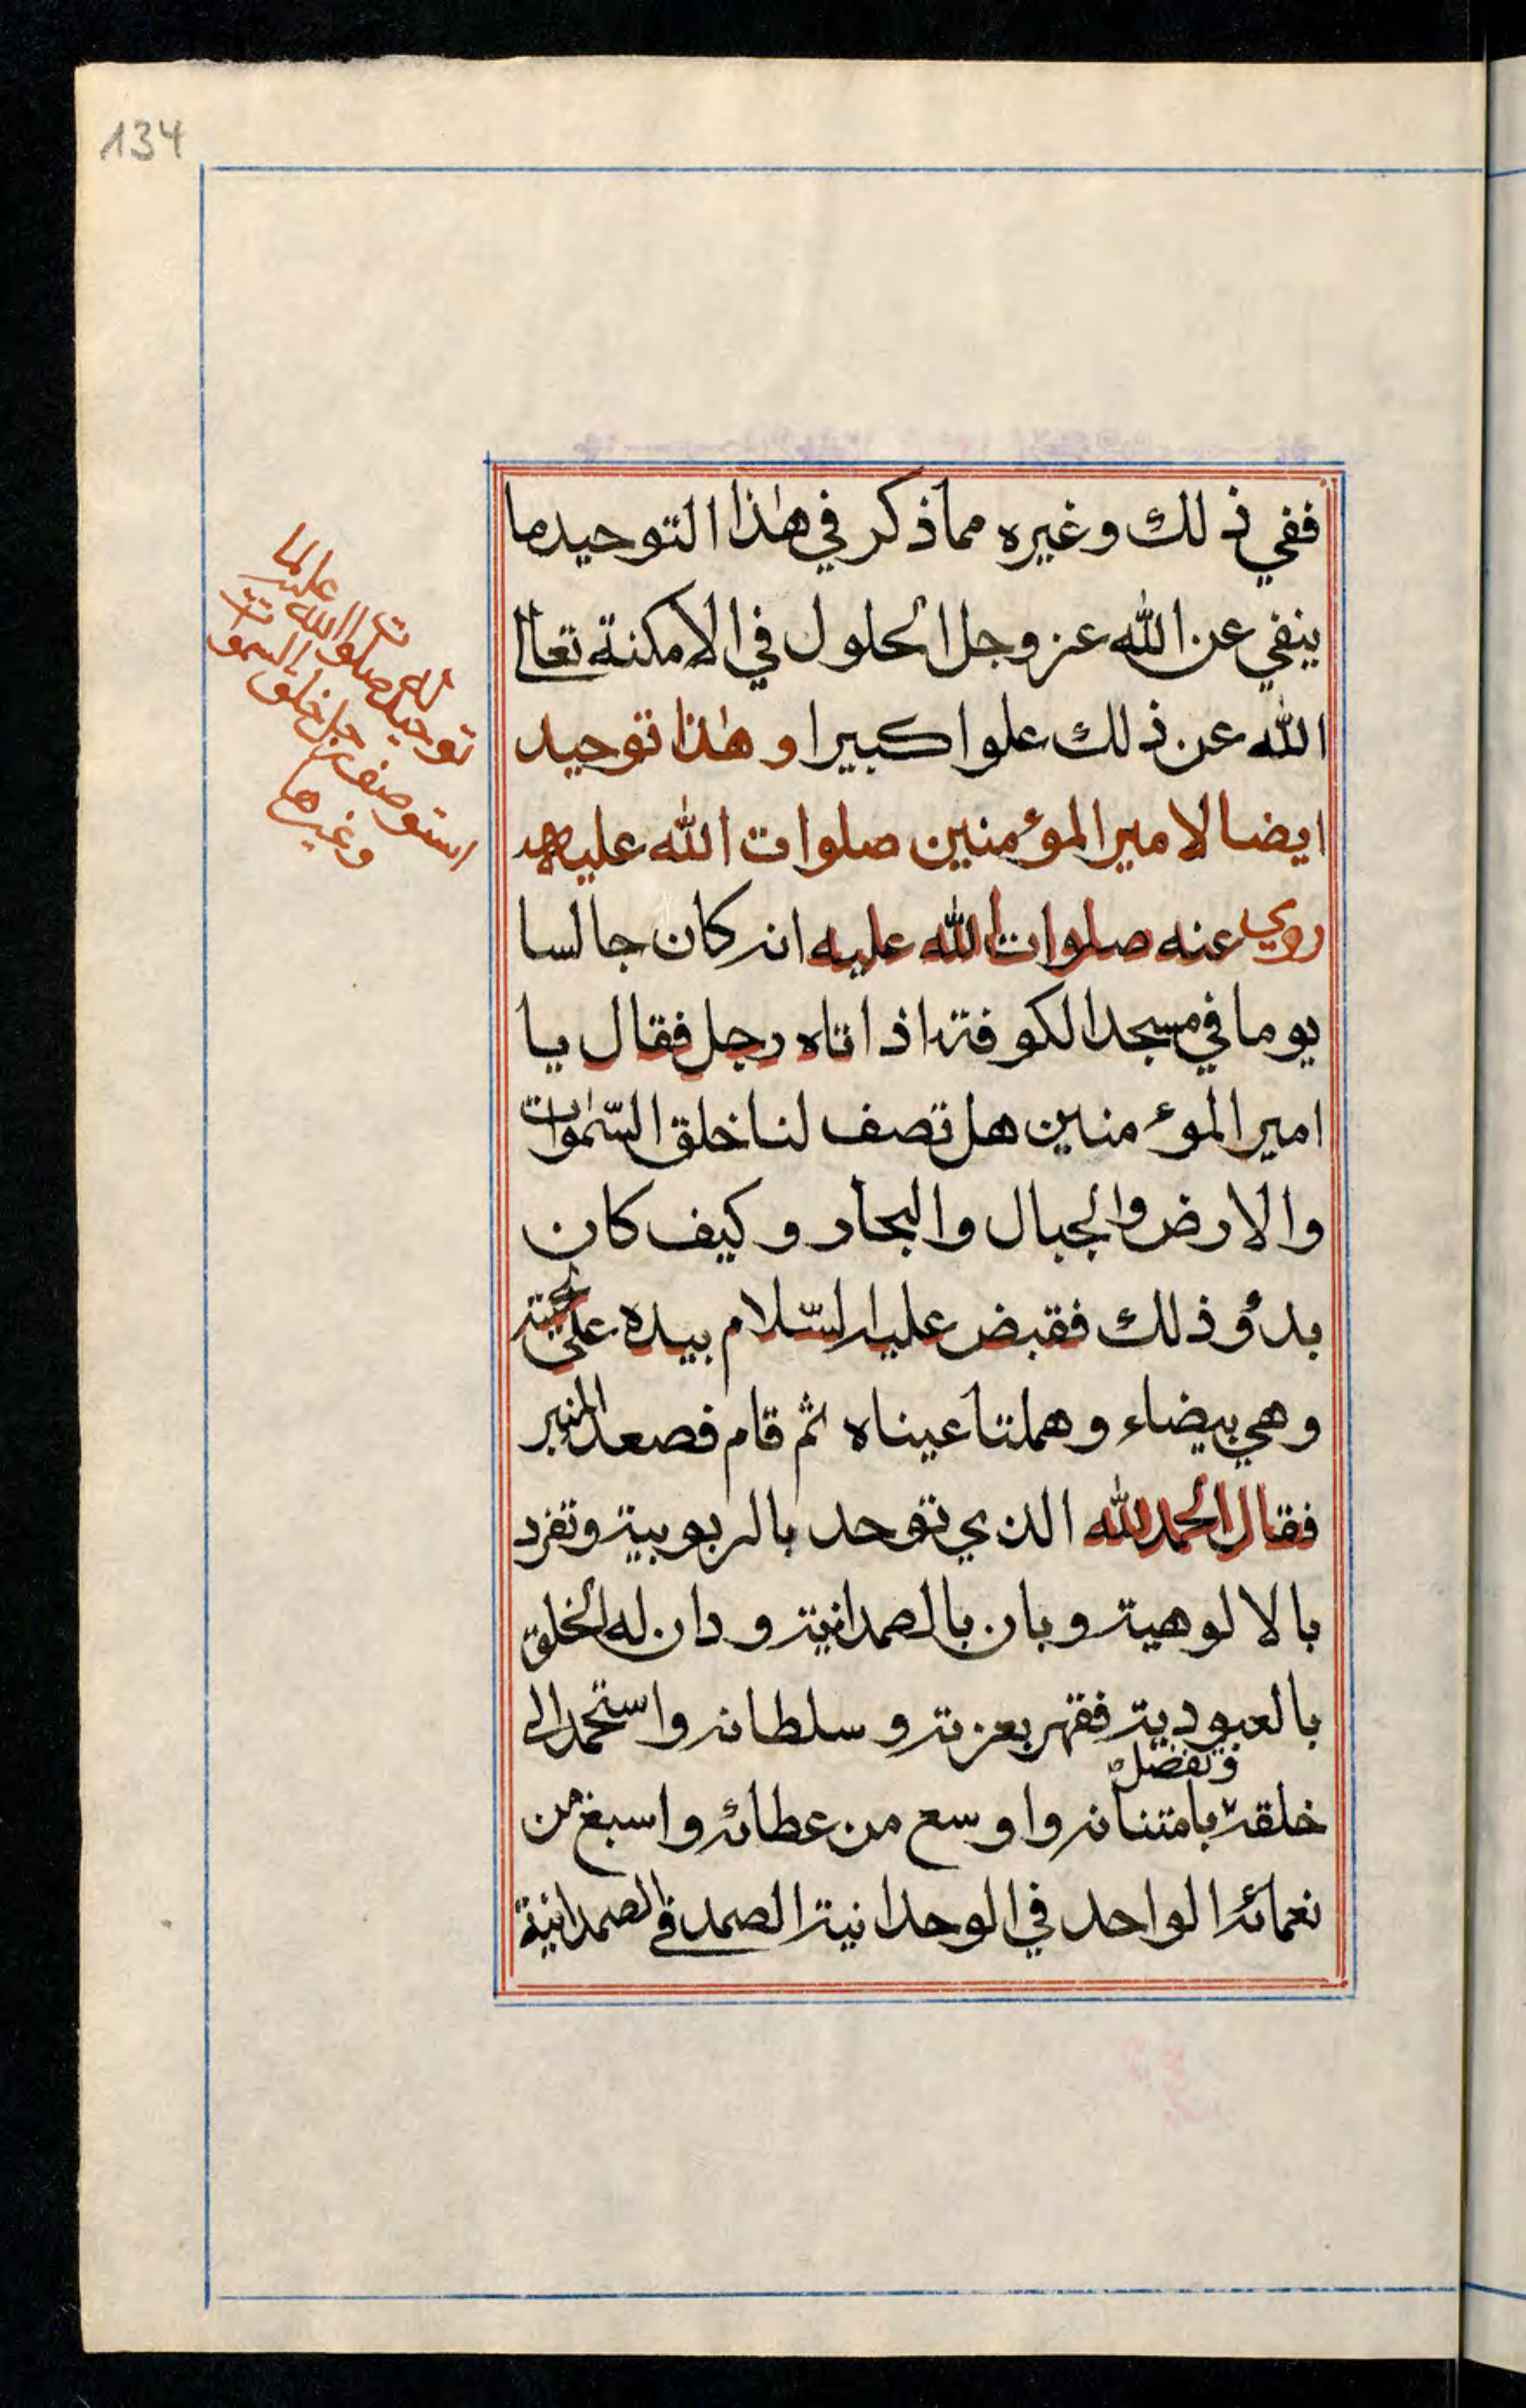 134
ففي ذلك وغيره مما ذكر في هٰذا التوحيد ما
ينفي عن الله عز وجل الحلول في الامكنة تعالى
الله عن ذلك علوا كبيرا وهٰذا توحيد
ايضا لامير المؤمنين صلوات الله عليه
روي عنه صلوات الله عليه انه كان جالسا
يوما في مسجد الكوفة اذ اتاه رجل فقال يا
امير المؤمنين هل تصف لنا خلق السّمٰوات
والارض والجبال والبحار وكيف كان
بدؤ ذلك فقبض عليه السّلام بيده على لحيته
وهي بيضاء وهملتا عيناه ثم قام فصعد المنبر
فقال الحمد لله الذي توحد بالربوبية وتفرد
بالالوهية وبان بالصمدانية ودان له الخلق
بالعبودية فقهر بعزته وسلطانه واستحمد الى
وتفضل
خلقه بامتنانه واوسع من عطائه واسبغ من
نعمائه الواحد في الوحدانية الصمد في الصمدانية
توحيد له صلوات الله عليه لما
استوصفه رجل خلق السموت
وغيرها